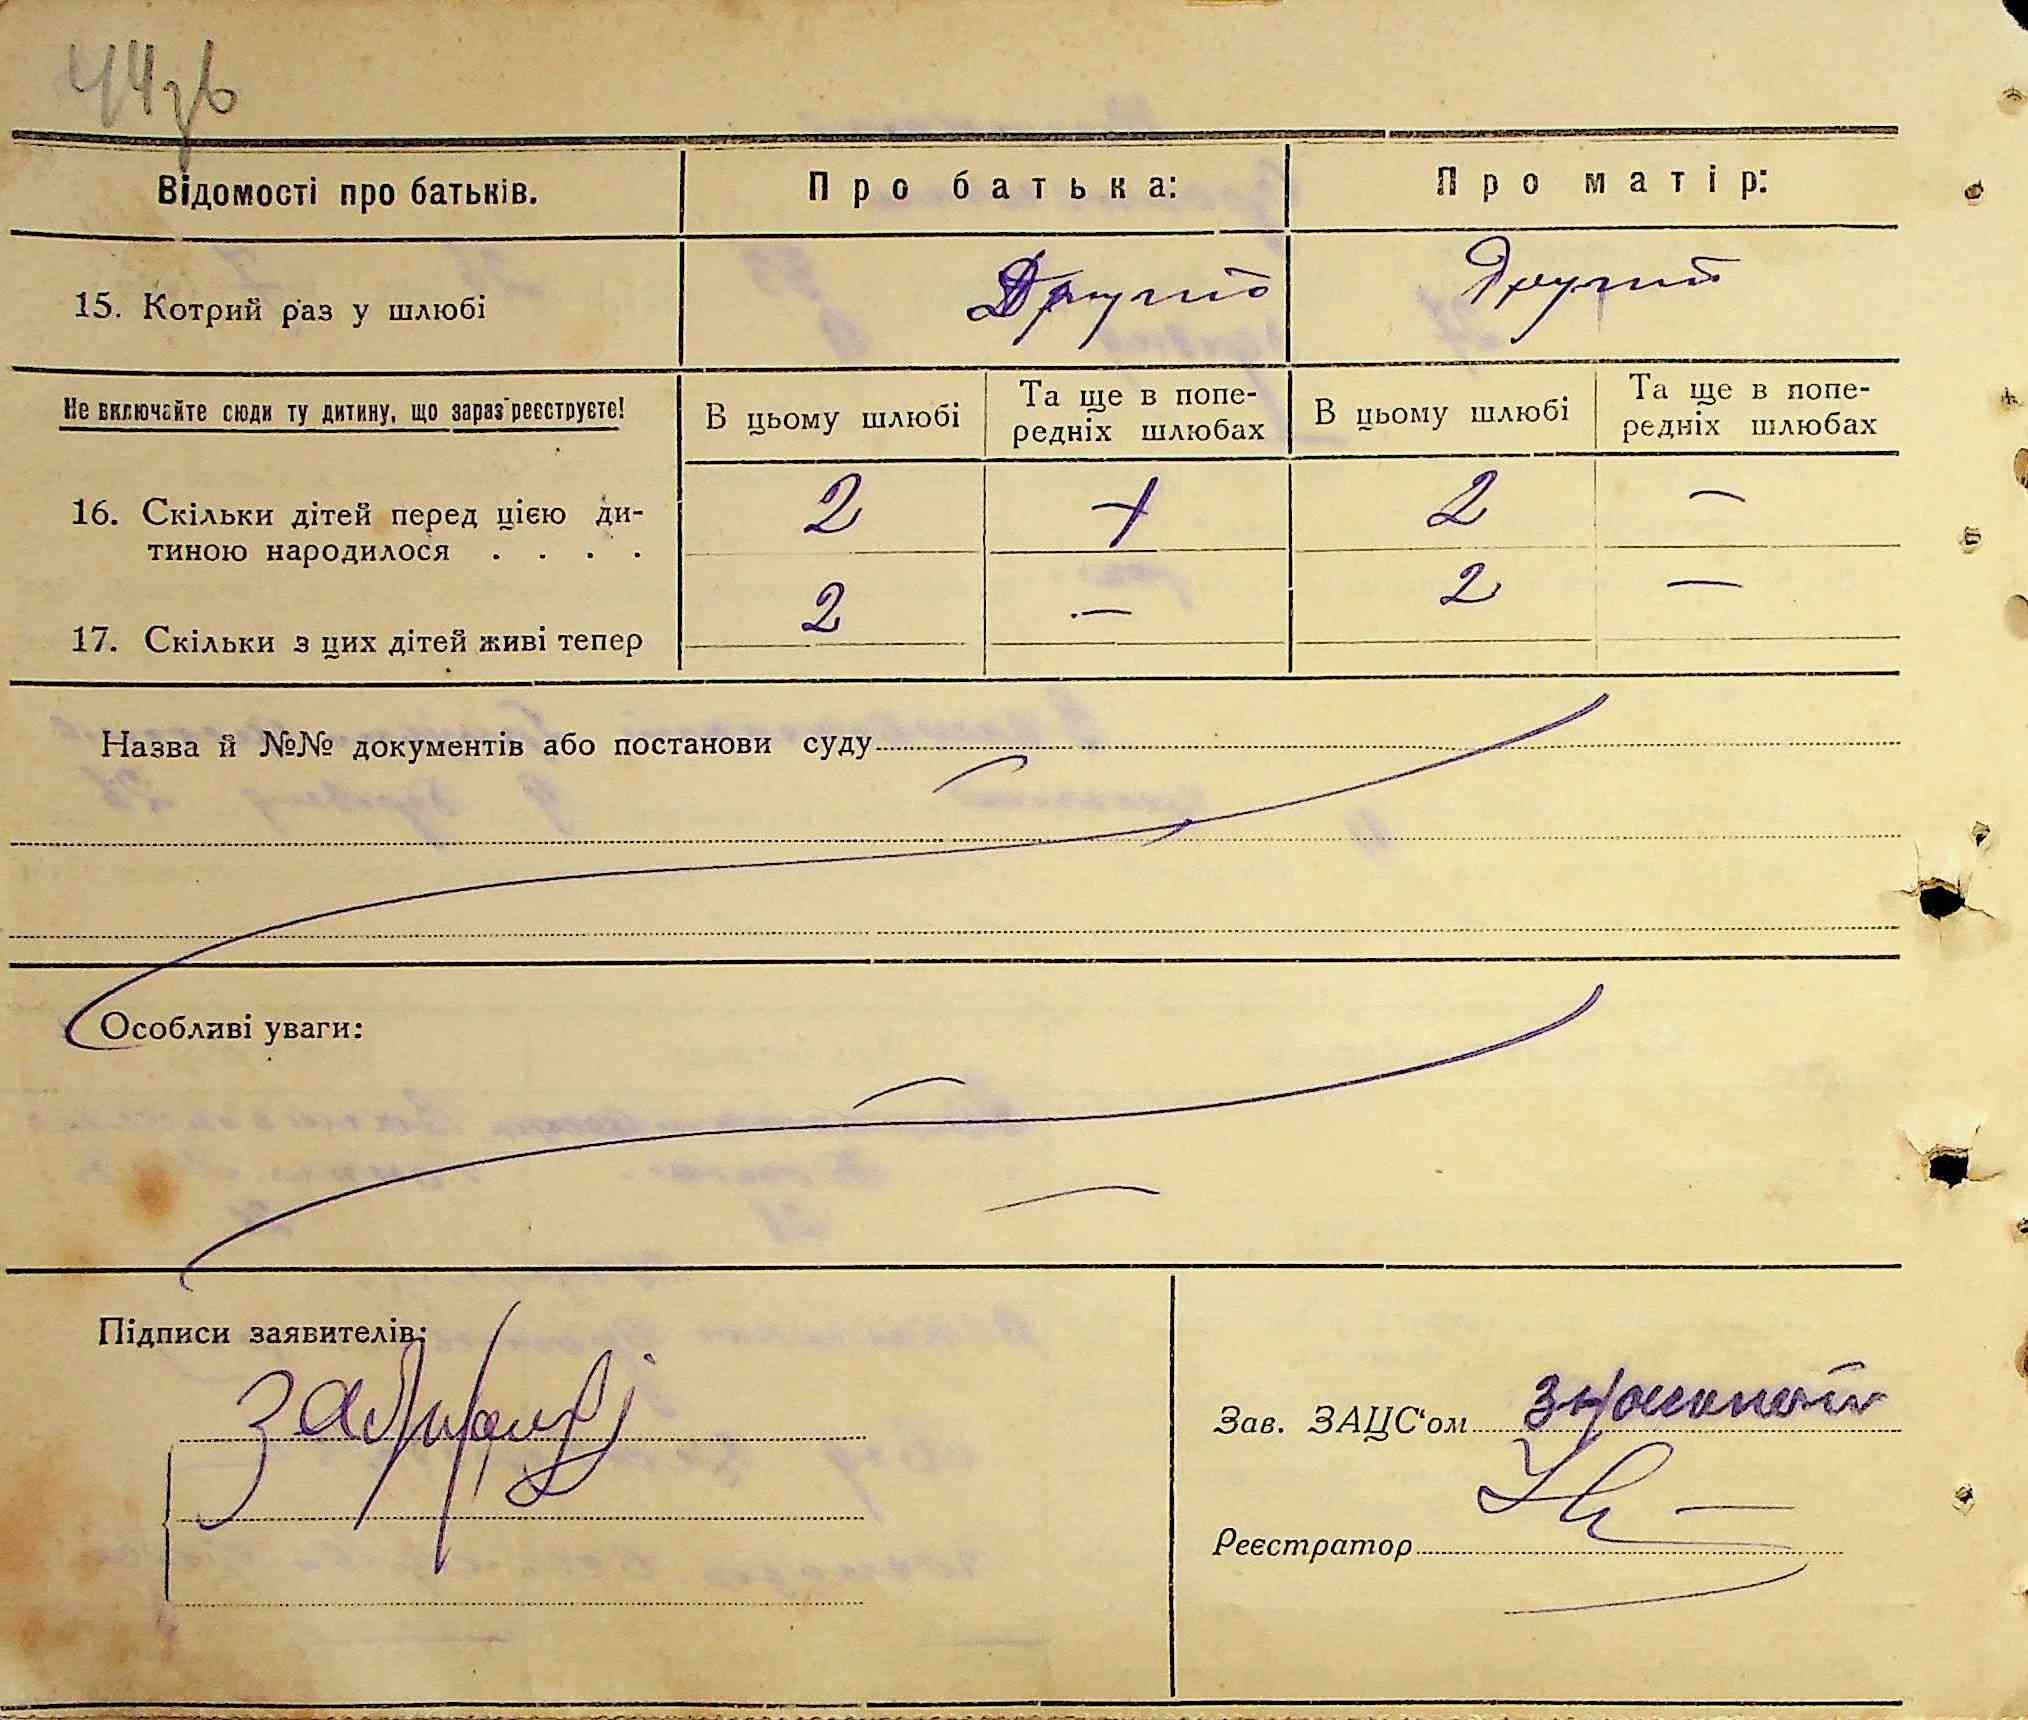 44зв
Відомості про батьків. Про батька: Про матір:
15. Котрий раз у шлюбі Другий Другий
Не включайте сюди ту дитину, що зараз реєструєте! В цьому шлюбі Та ще в попе- В цьому шлюбі Та ще в попе-
редніх шлюбах редніх шлюбах
16. Скільки дітей перед цією ди- 2 2 —
тиною народилося . . . .
17. Скільки з цих дітей живі тепер 2 — 2 —
Назва й №№ документів або постанови суду
Особливі уваги:
Підписи заявителів:
Зав. ЗАЦС'ом
Реєстратор